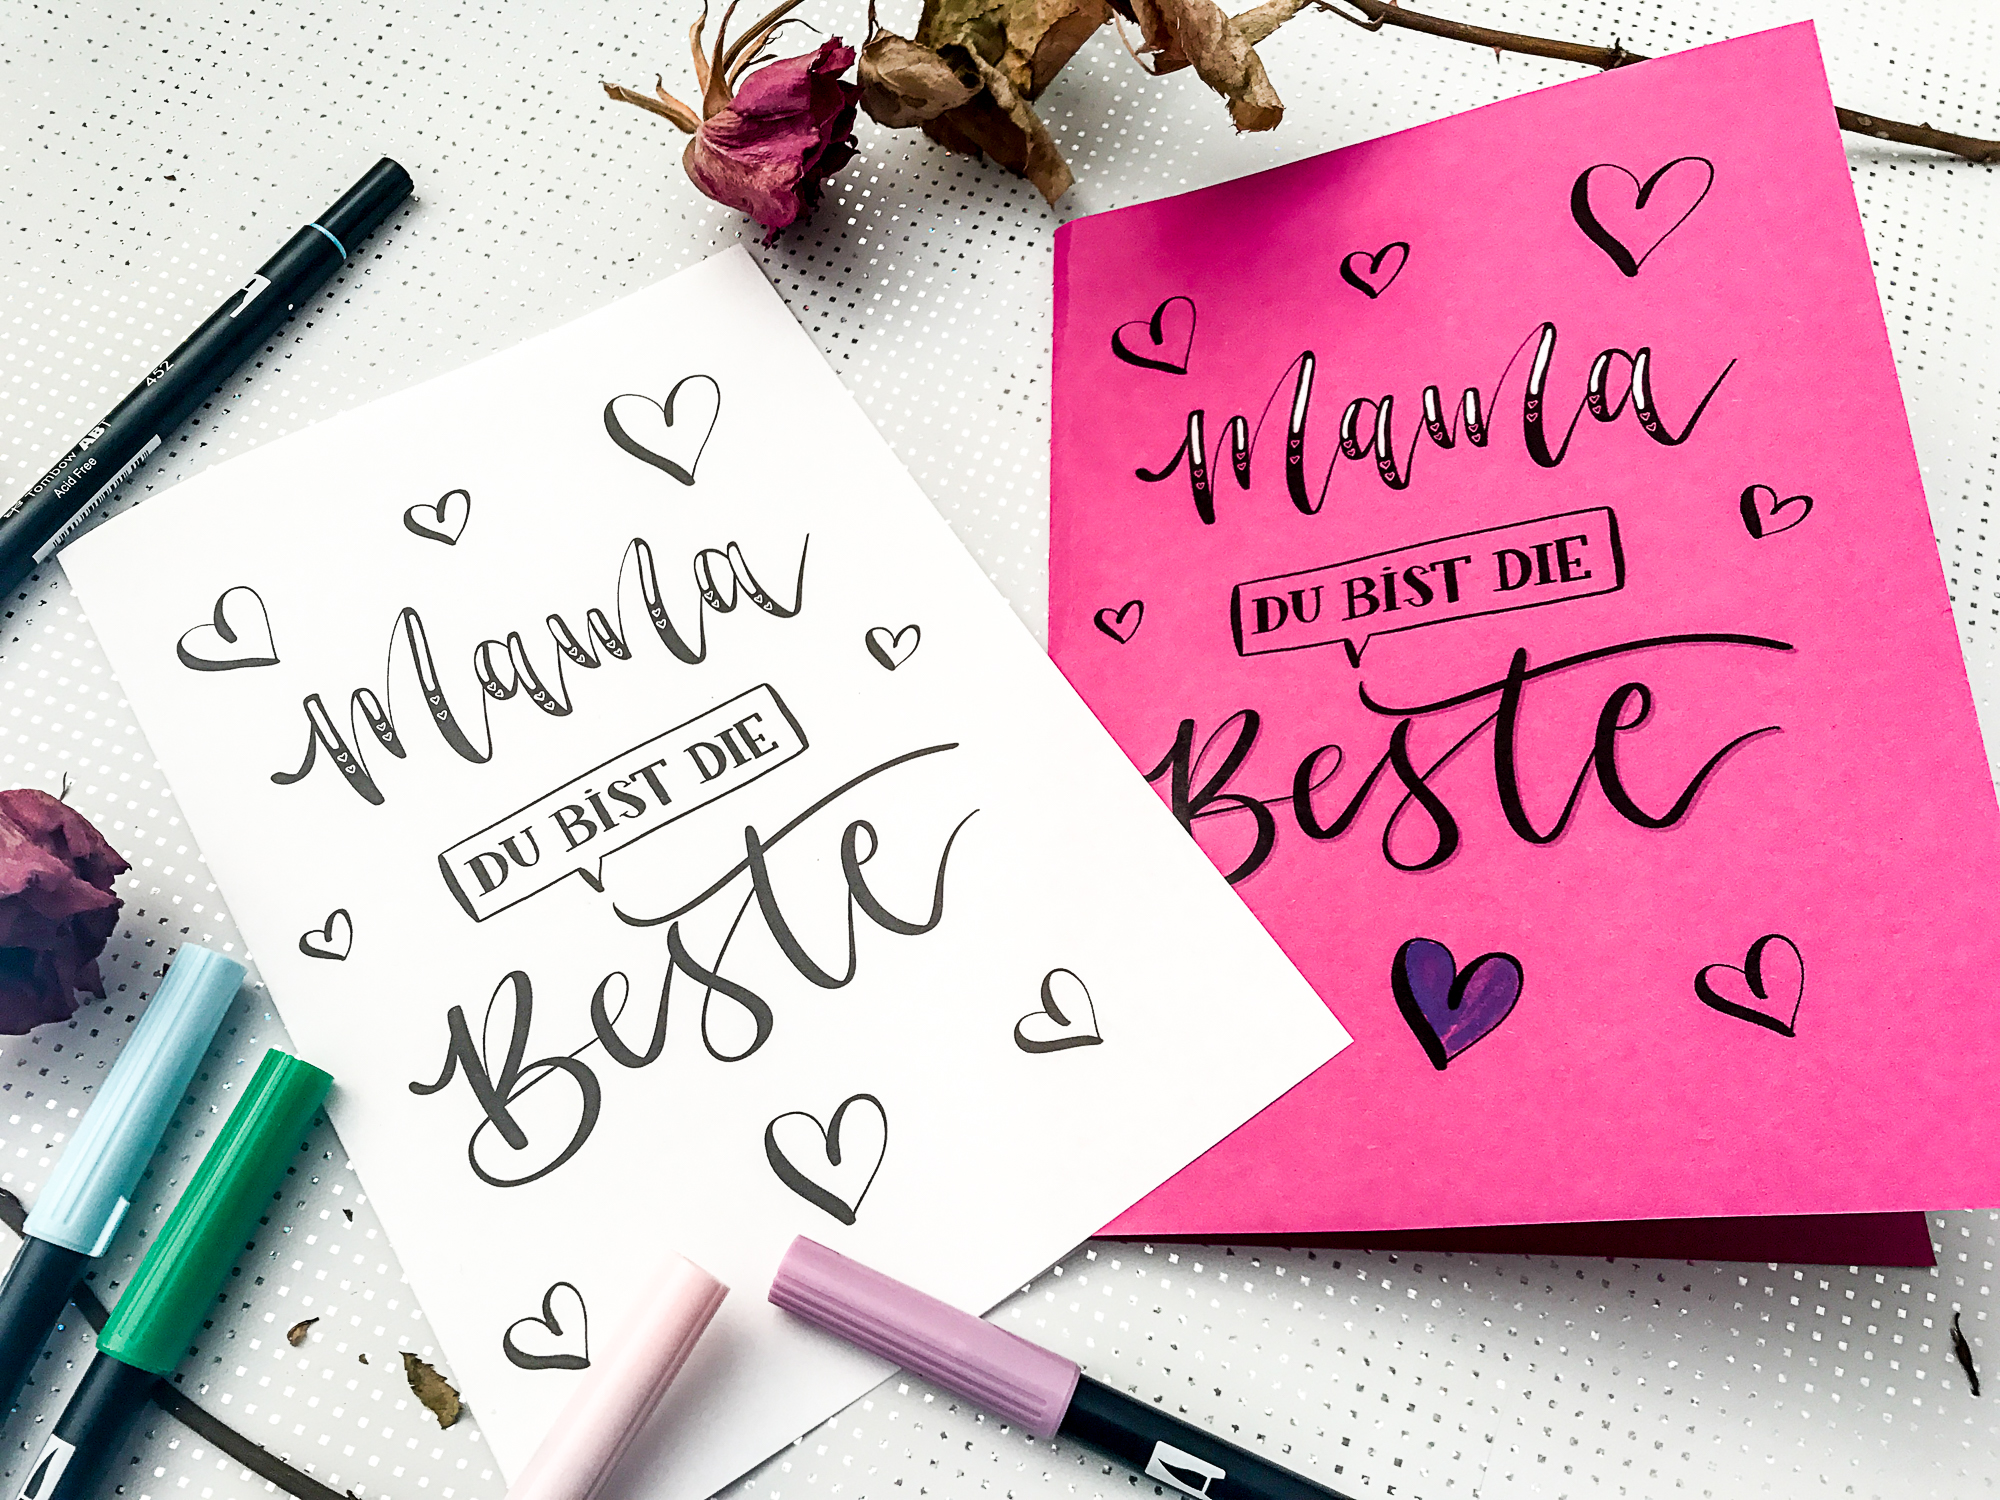 452
Tombow ABT
Acid Free
Mama
DU BIST DIE
Beste
Mama
DU BIST DIE
Beste